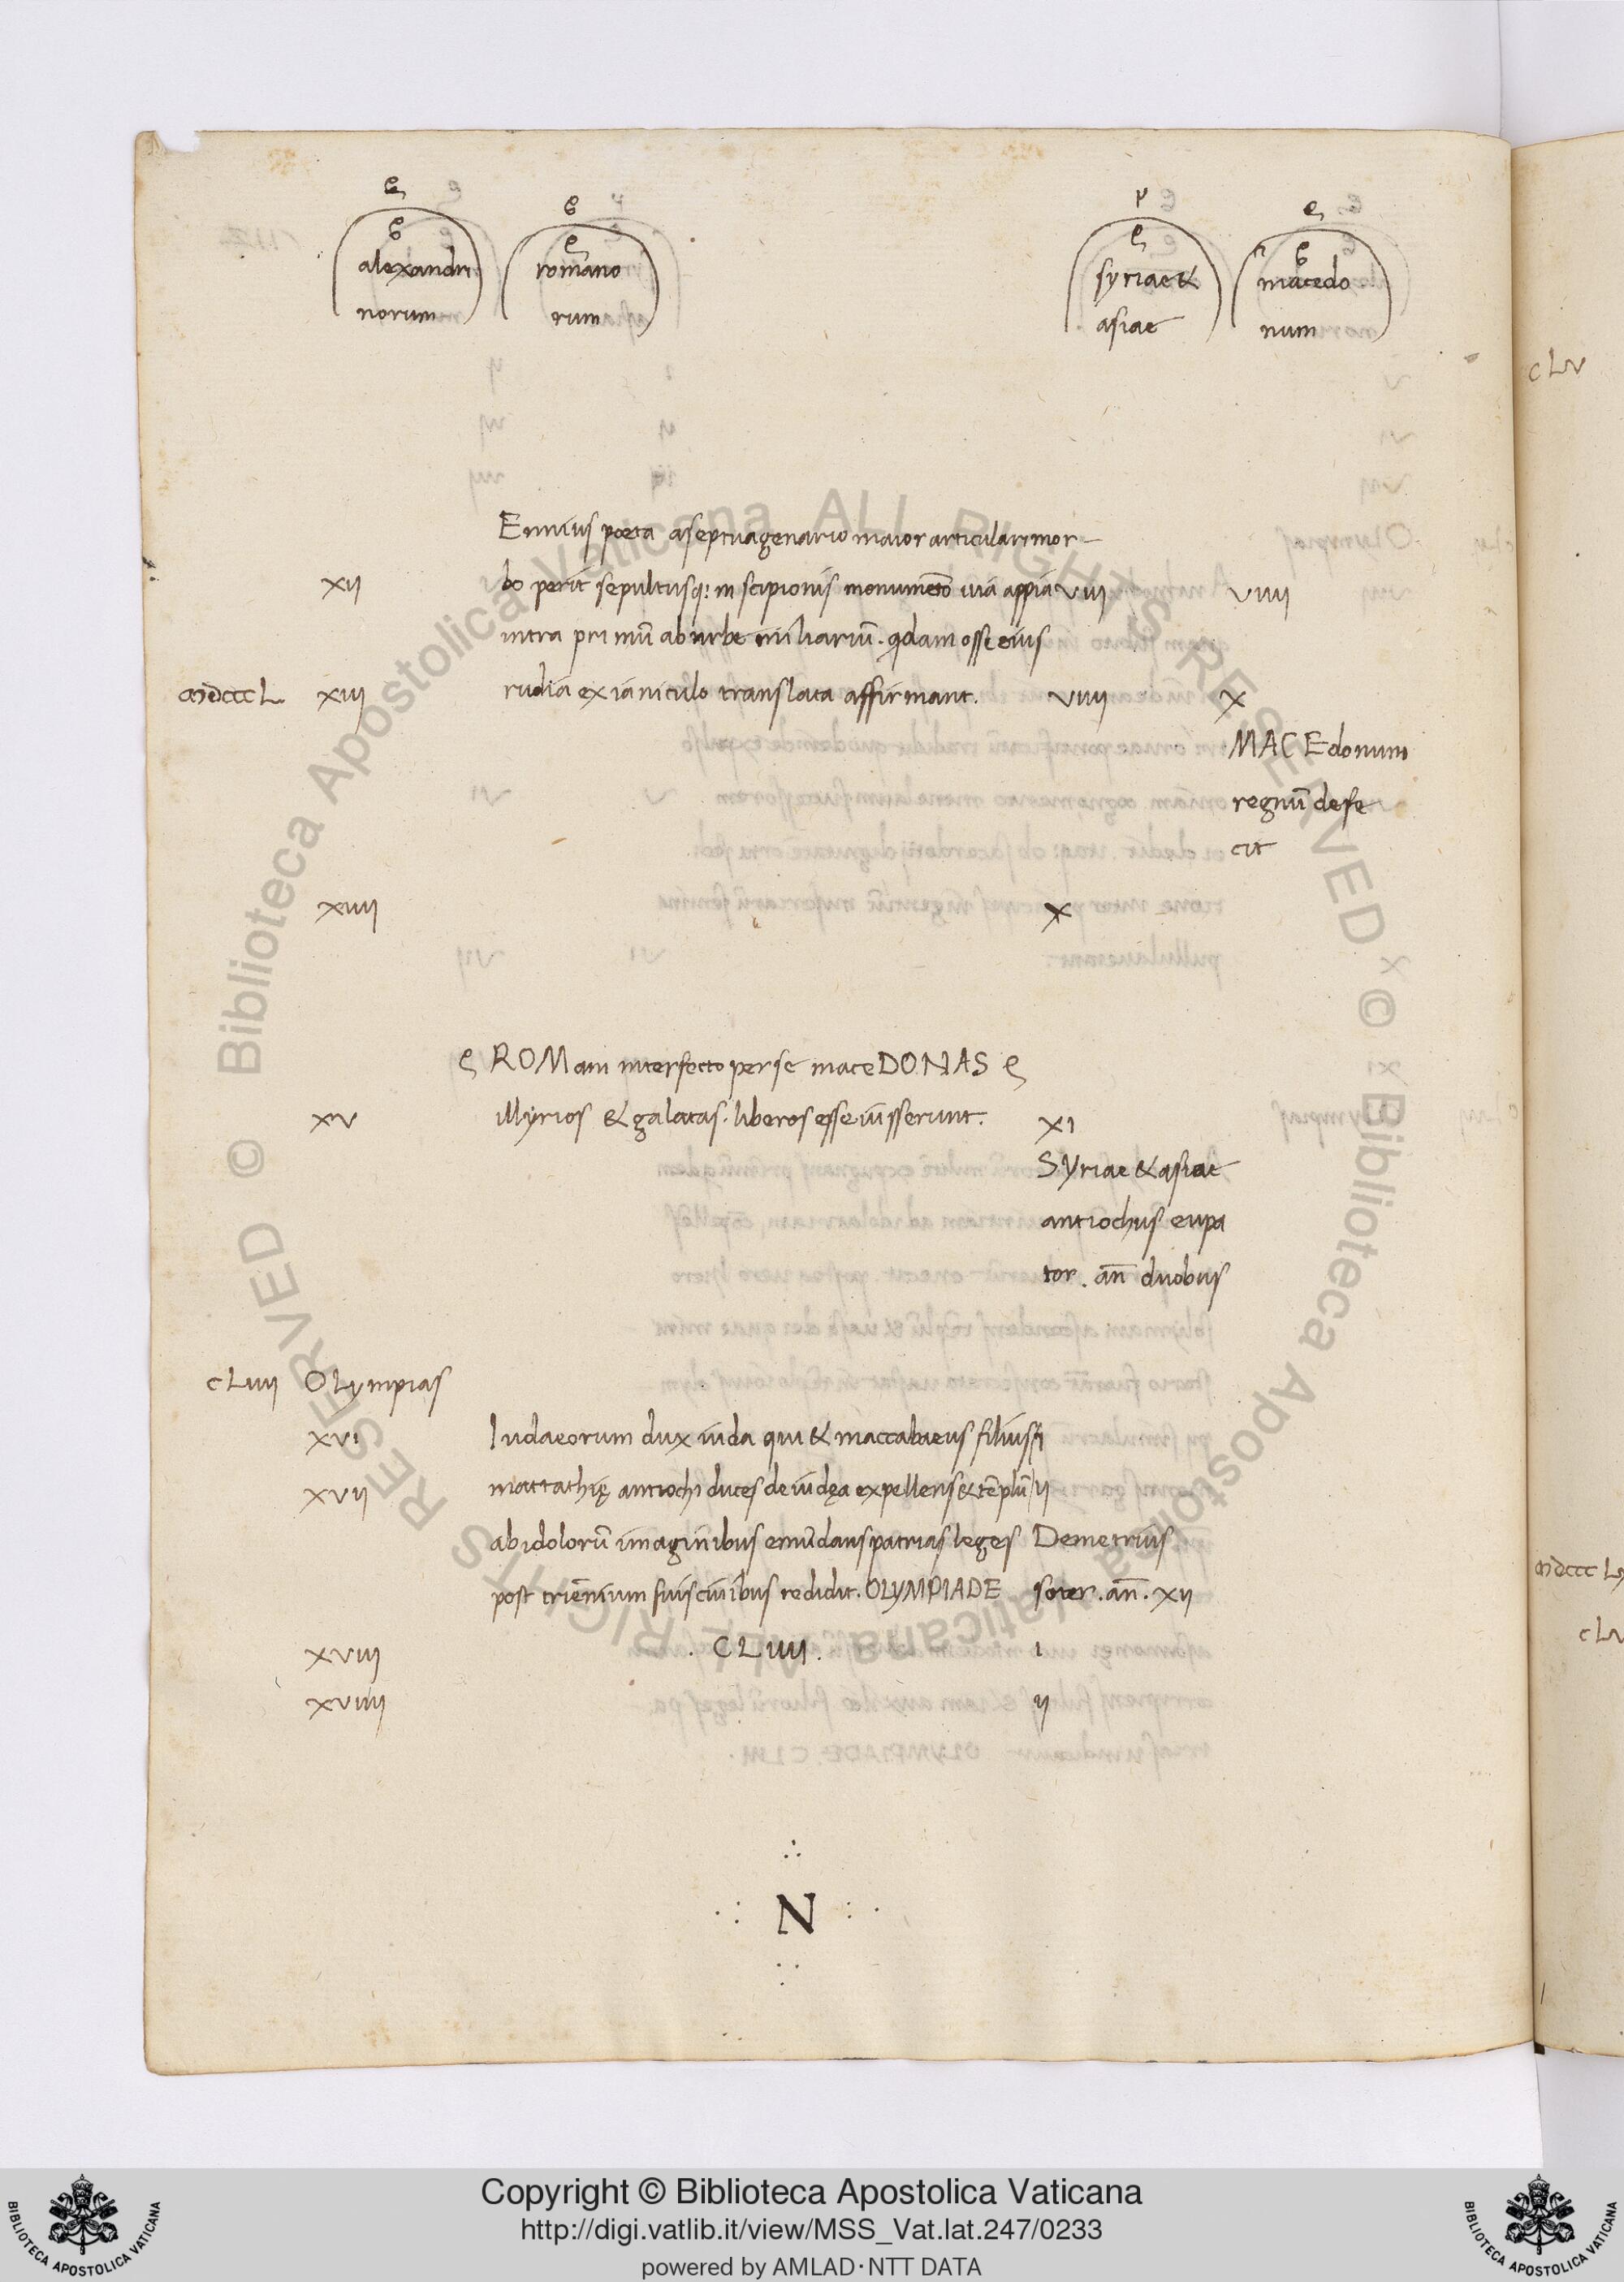 alexandri
norum
romano
rum
syriae &
asiae
macedo
num
Ennius poeta a septuagenario maior articulari mor-
xıı bo perit sepultusq: in scipionis monumēto uia appia vııı vıııı
intra primū ab urbe miliariū. qdam osse eius
mdccc L xııı rudia ex ianiculo translata affirmant. vıııı x
MACEdonum
regnū defe
cit
xıııı x
ROMani interfecto perse maceDONAS
xv illyrios & galatas. liberos esse iusserunt. xı
Syriae & asiae
antiochus eupa
tor. añ duobus
cLıııı OLympias
xvı Iudaeorum dux iuda qui & maccabaeus filius ı
xvıı mattathię antiochi duces de iudęa expellens & tēplū ıı
ab idolorū imaginibus emūdans patrias leges Demetrius
post triēnium suis ciuibus redidit. OLYMPIADE soter. añ. xıı
xvııı . CLıııı. ı
xvıııı ıı
N
cLv
cLv
Copyright © Biblioteca Apostolica Vaticana
http://digi.vatlib.it/view/MSS_Vat.lat.247/0233
powered by AMLAD·NTT DATA
BIBLIOTECA APOSTOLICA VATICANA
BIBLIOTECA APOSTOLICA VATICANA
© Biblioteca Apostolica Vaticana ALL RIGHTS RESERVED
© Biblioteca Apostolica Vaticana ALL RIGHTS RESERVED